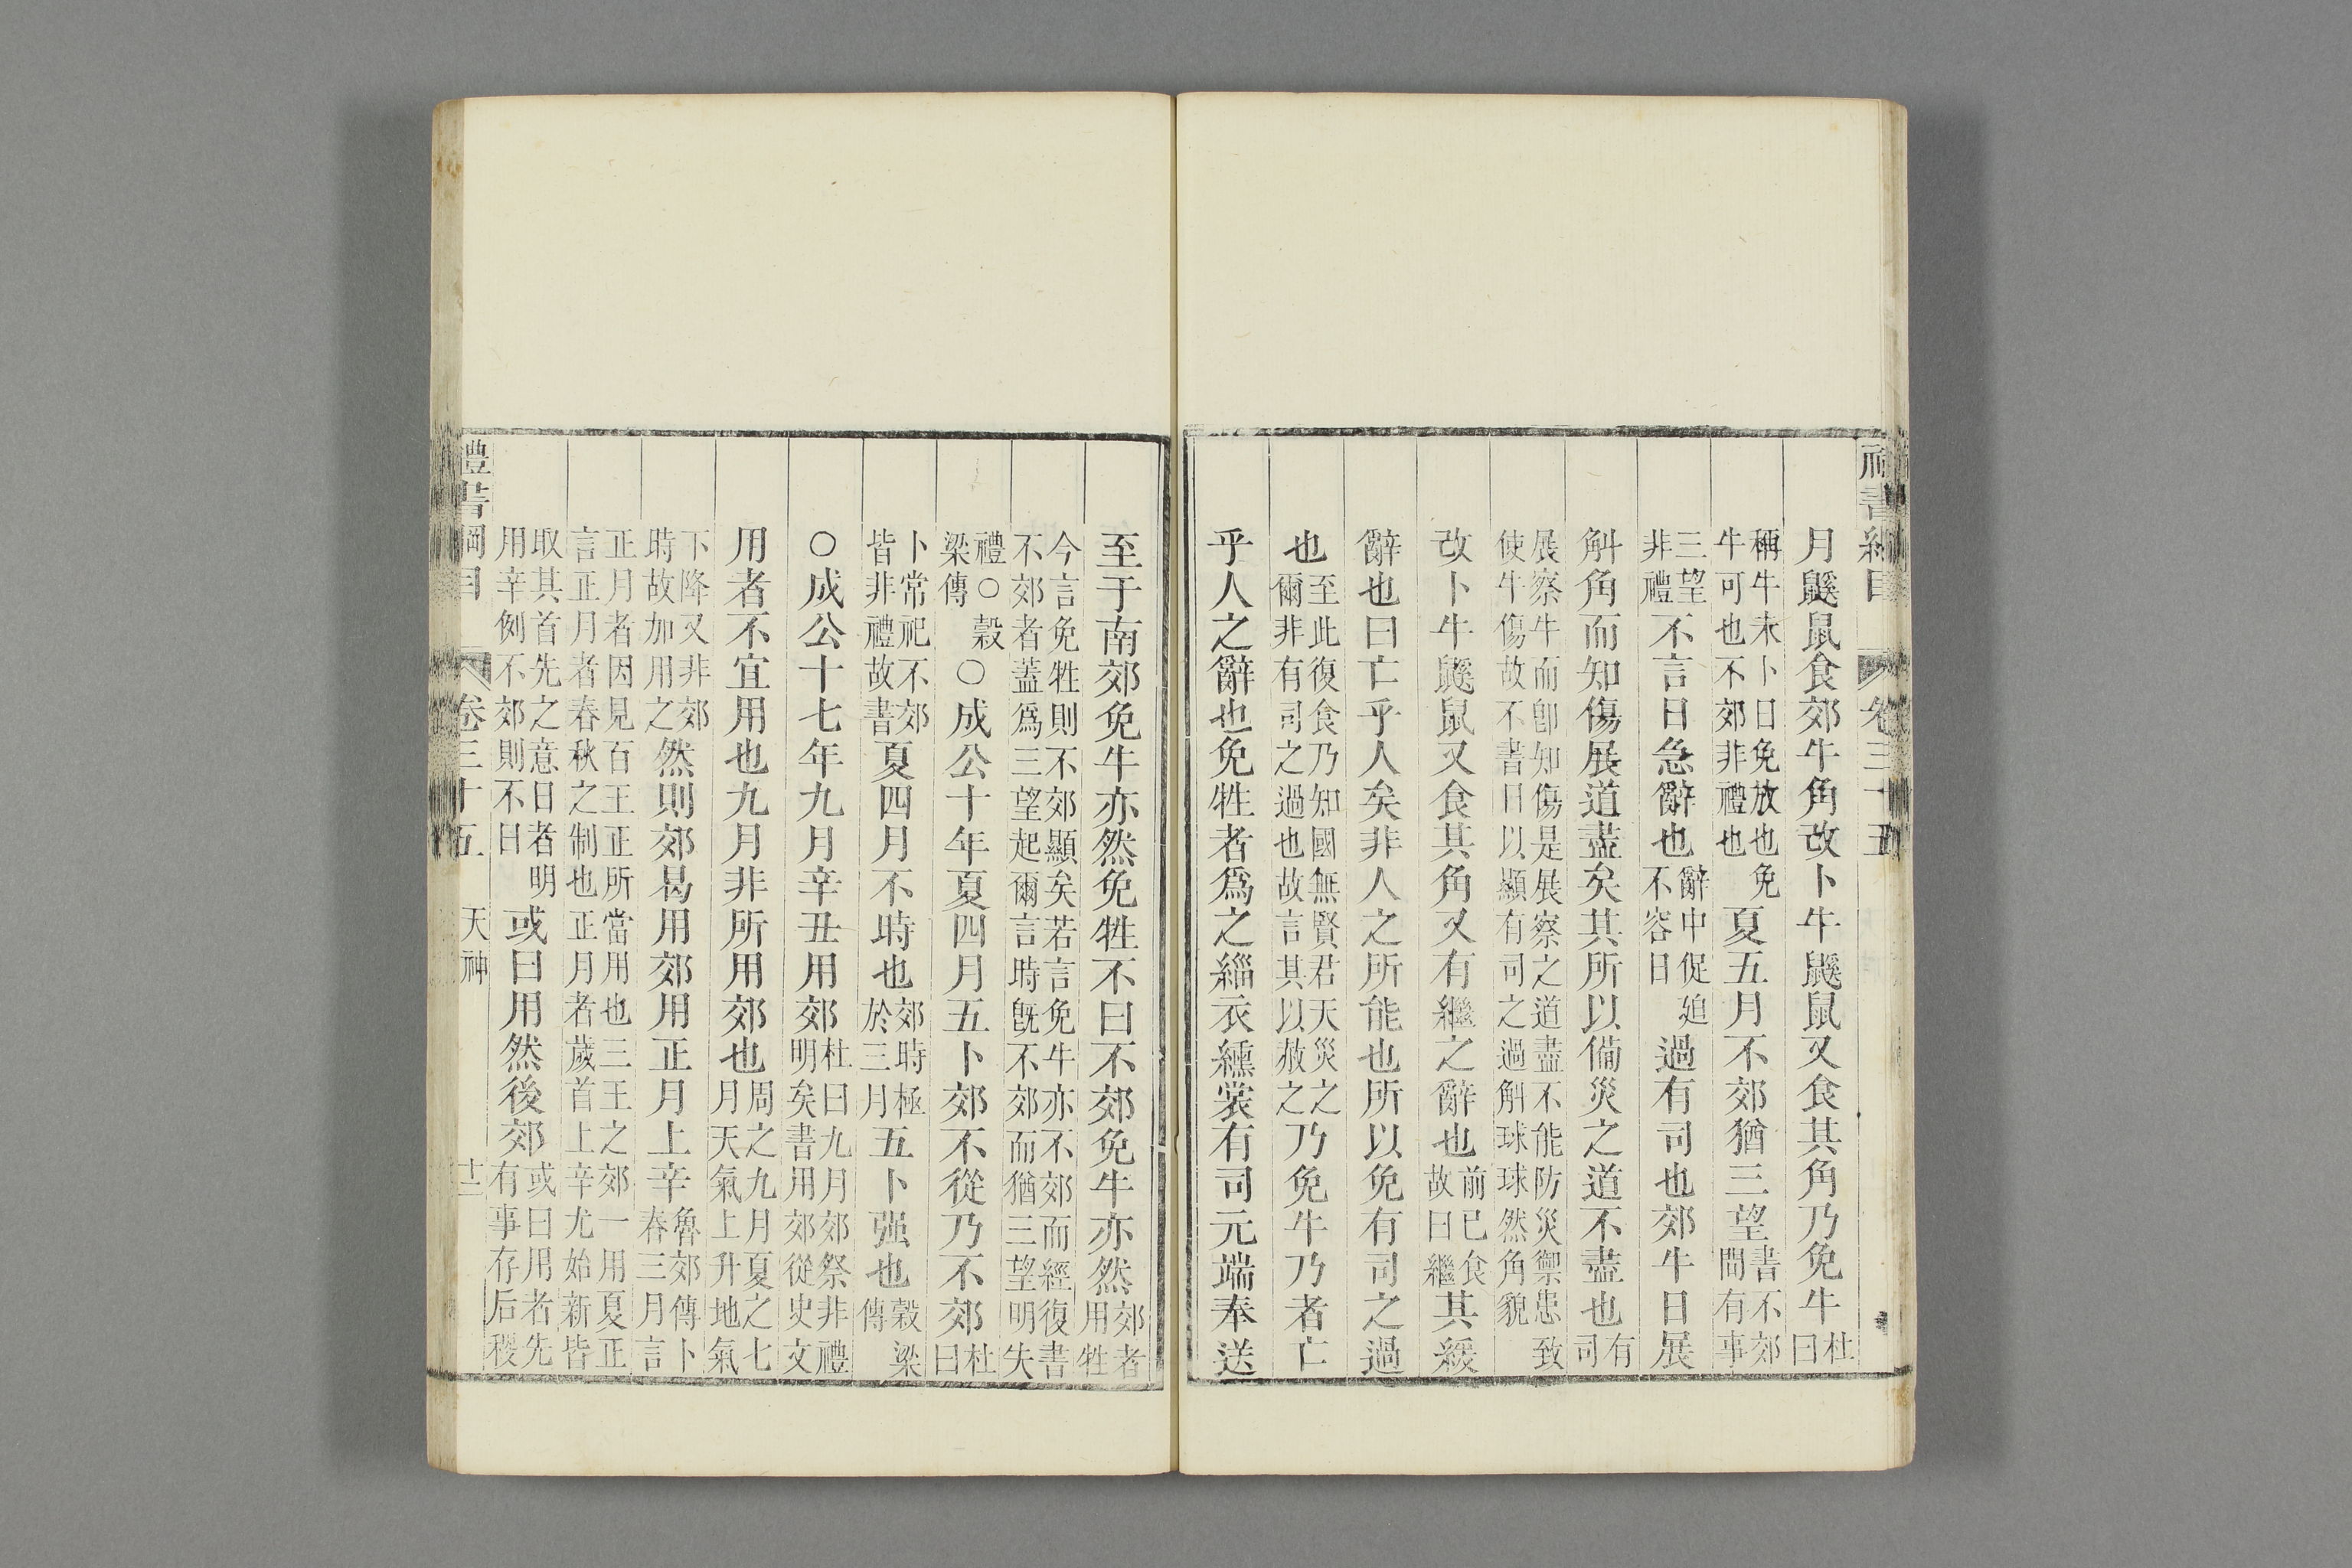 禮書綱目 卷三十五
月鼷鼠食郊牛角改卜牛鼷鼠又食其角乃免牛杜曰
稱牛未卜日免放也免牛可也不郊非禮也夏五月不郊猶三望書不郊間有事
三望非禮不言日急辭也辭中促迫不容日過有司也郊牛日展
斛角而知傷展道盡矣其所以備災之道不盡也有司
展察牛而卽知傷是展察之道盡不能防災禦患致使牛傷故不書日以顯有司之過斛球球然角貌
改卜牛鼷鼠又食其角又有繼之辭也前已食故曰繼其緩
辭也曰亡乎人矣非人之所能也所以免有司之過
也至此復食乃知國無賢君天災之爾非有司之過也故言其以赦之乃免牛乃者亡
乎人之辭也免牲者爲之緇衣纁裳有司元端奉送
至于南郊免牛亦然免牲不曰不郊免牛亦然郊者用牲
今言免牲則不郊顯矣若言免牛亦不郊而經復書不郊者蓋爲三望起爾言時旣不郊而猶三望明失
禮○穀梁傳○成公十年夏四月五卜郊不從乃不郊杜曰
卜常祀不郊皆非禮故書夏四月不時也郊時極於三月五卜强也穀梁傳
○成公十七年九月辛丑用郊杜曰九月郊祭非禮明矣書用郊從史文
用者不宜用也九月非所用郊也周之九月夏之七月天氣上升地氣
下降又非郊時故加用之然則郊曷用郊用正月上辛魯郊傳卜春三月言
正月者因見百王正所當用也三王之郊一用夏正言正月者春秋之制也正月者歲首上辛尤始新皆
取其首先之意日者明用辛例不郊則不日或曰用然後郊或曰用者先有事存后稷
禮書綱目 卷三十五 天神 十二